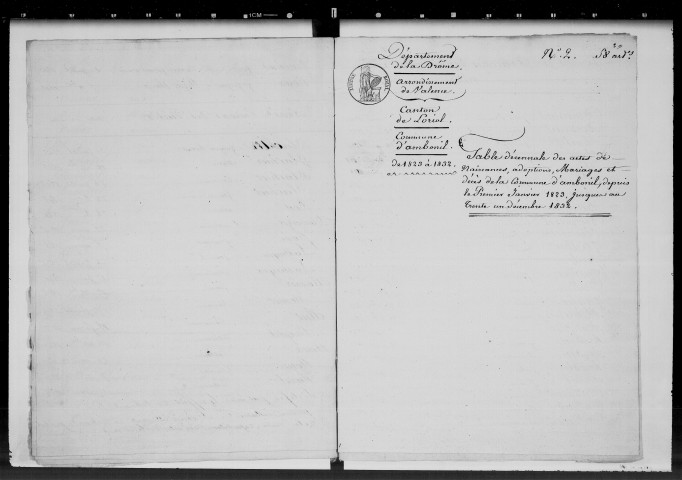 Département
de la Drôme.
arrondissement
de Valence.
Canton
de Loriol.
Commune
d'ambonil.
de 1823 à 1832.
N.º 2.
Table décennale des actes de
Naissances, adoptions, Mariages et
décès de la Commune d'ambonil, depuis
le Premier Janvier 1823, jusques au
trente un décembre 1832.